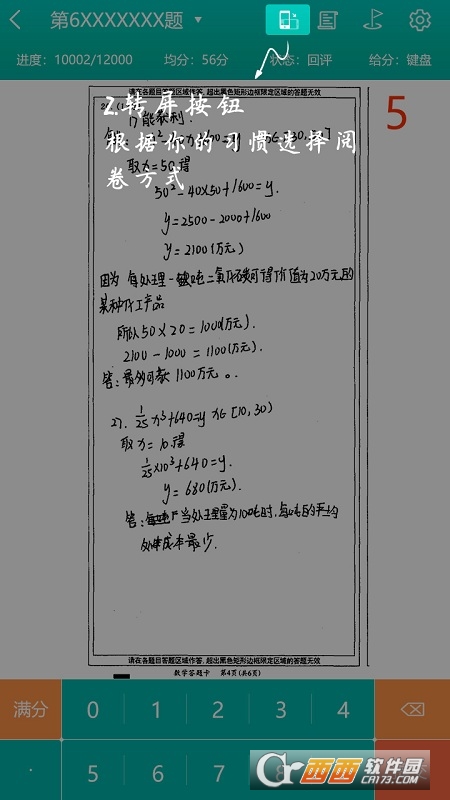 第6XXXXXXX题
进度：10002/12000 均分：56分 状态：回评 给分：键盘
请在各题目答题区域作答，超出黑色矩形边框限定区域的答题无效
5
2.转屏按钮
根据你的习惯选择阅
卷方式
1) 能获利.
取x=50得
50²-40×50+1600=y.
y=2500-2000+1600
y=2100(万元)
因为 每处理一吨二氧化碳可得价值为20万元的
某种化工产品
所以50×20=1000(万元).
2100-1000=1100(万元).
答:最多可款1100万元。.
2). 1/25 x³+640=y x∈[10,30)
取x=10.得
1/25×10³+640=y.
y=680(万元).
答: 当处理量为10吨时,每吨的平均
处理成本最少.
请在各题目答题区域作答，超出黑色矩形边框限定区域的答题无效
数学答题卡 第4页(共6页)
满分 0 1 2 3 4
· 5 6 7 8
西西软件园
CR173.COM